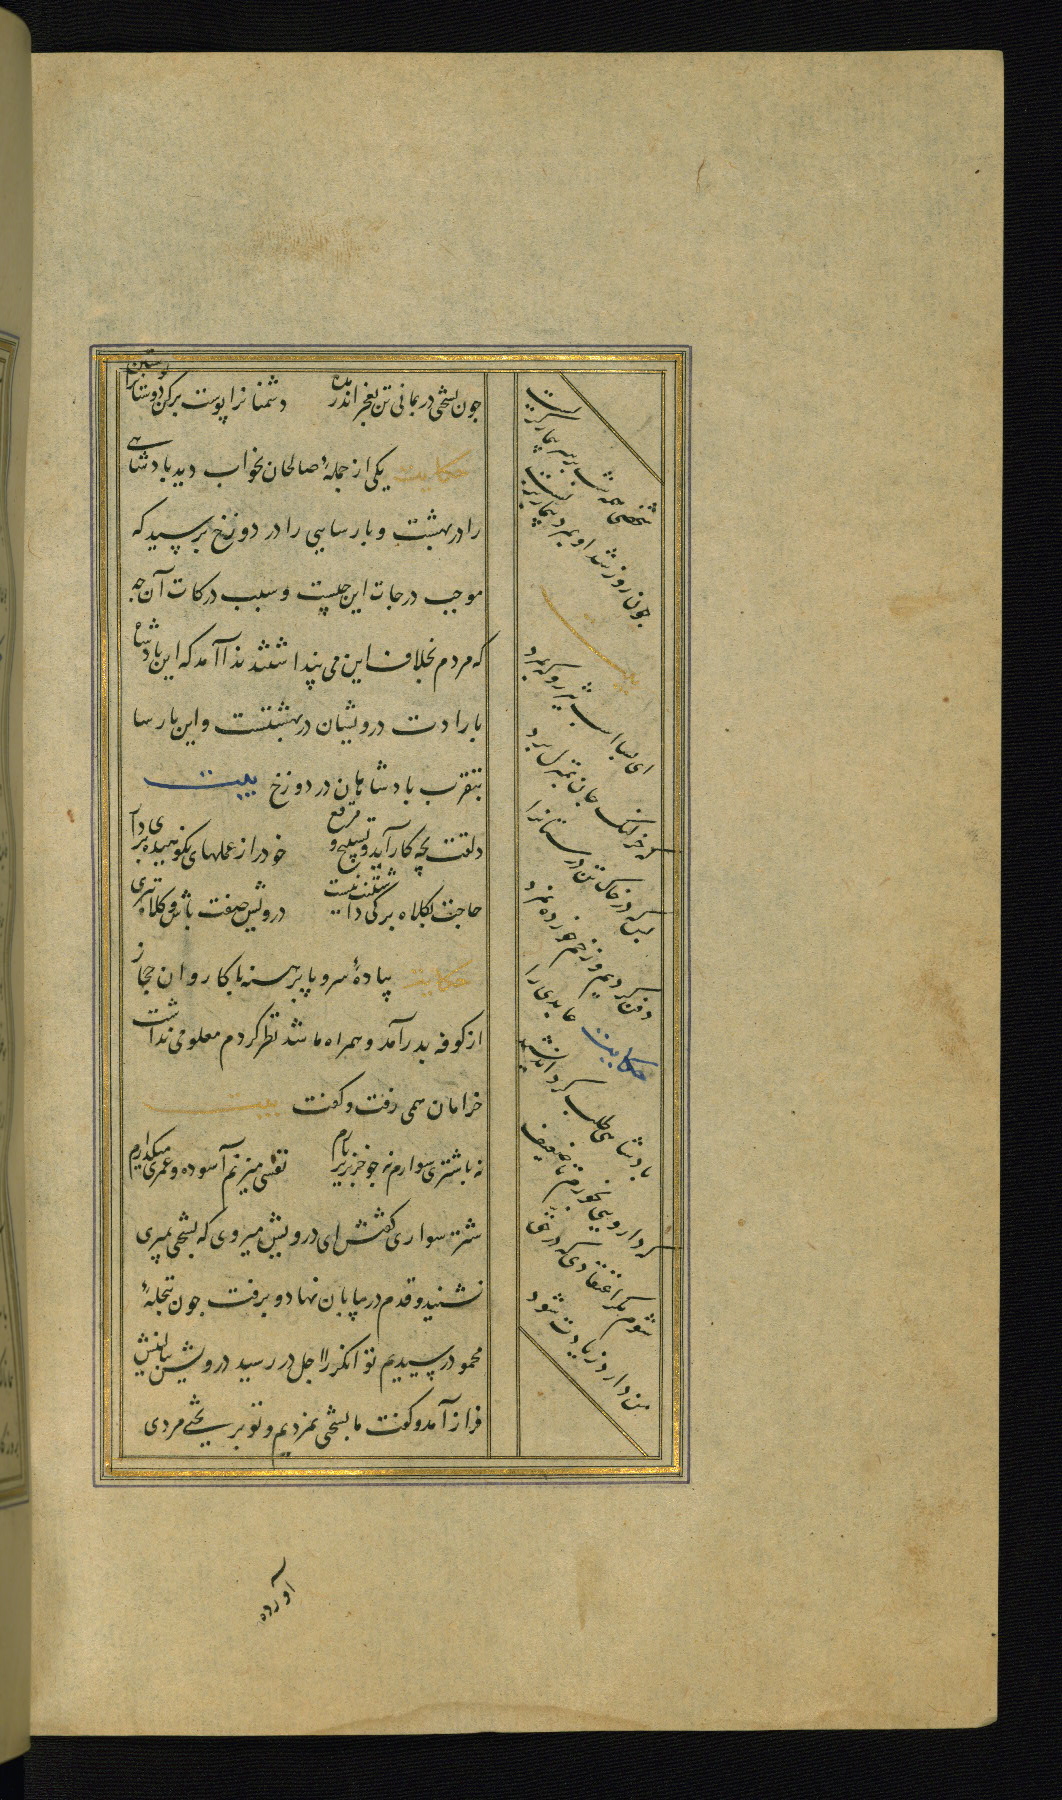 جون بسختی در بمانی تن بعجز اندر مده دشمنانرا پوست برکن دوستانرا پوستین
حکایت یکی از جملهٔ صالحان بخواب دید پادشاهی
را در بهشت و پارسایی را در دوزخ پرسید که
موجب درجات این چیست و سبب درکات آن چه
که مردم بخلاف این می پنداشتند ندا آمد که این پادشاه
بارادت درویشان در بهشتست و این پارسا
بتقرب پادشاهان در دوزخ بیت
دلقت بچه کار آید و تسبیح و مرقع خود را ز عملهای نکوهیده بری دار
حاجت بکلاه برکی داشتنت نیست درویش صفت باش و کلاه تتری
حکایت پیادهٔ سر و پا برهنه با کاروان حجاز
از کوفه بدر آمد و همراه ما شد نظر کردم معلومی نداشت
خرامان همی رفت و کفت بیت
نه باشتری سوارم نه جو خر بزیر بارم نفسی میزنم آسوده و عمری میکذارم
شتر سواری کفتش ای درویش میروی که بسختی بمیری
نشنید و قدم در بیابان نهاد و برفت جون بنخلهٔ
محمود رسیدیم توانکر را اجل در رسید درویش ببالینش
فراز آمد و کفت ما بسختی نمردیم و تو بر بختی مردی
شخصی همه شب بر سر بیمار کریست
جون روز شد او بمرد و بیمار بزیست
بیت
ای بسا اسب تیز رو که بمرد
که خر لنک جان بمنزل برد
بس که در خاک تن درستانرا
دفن کردیم و زخم خورده نمرد
حکایت عابدی را
پادشاهی طلب کرد اندیشید
که دارویی بخورم تا ضعیف
شوم مکر اعتقادی که در حق
من دارد زیادت شود
آورده